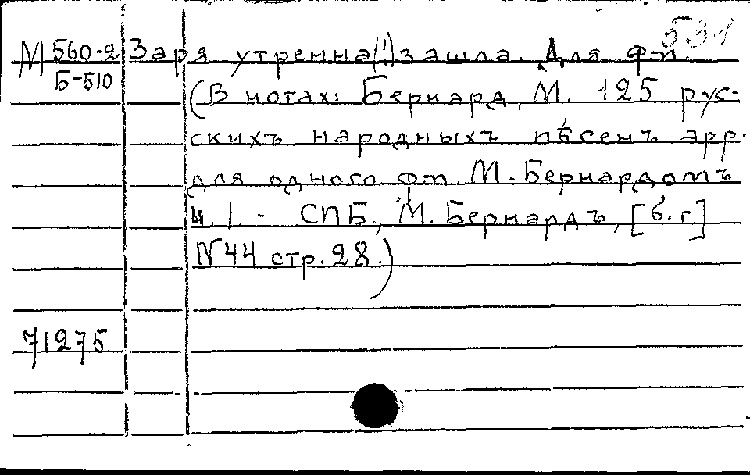 531
М 560-2 Заря утренна(!) зашла. Для ф-п.
Б-510
(В нотах: Бернард, М. 125 рус-
скихъ народныхъ пѣсенъ арр.
для одного фп. М. Бернардомъ
ч. I. - СПБ, М. Бернардъ, [б. г.]
N 44 стр. 28.)
71275